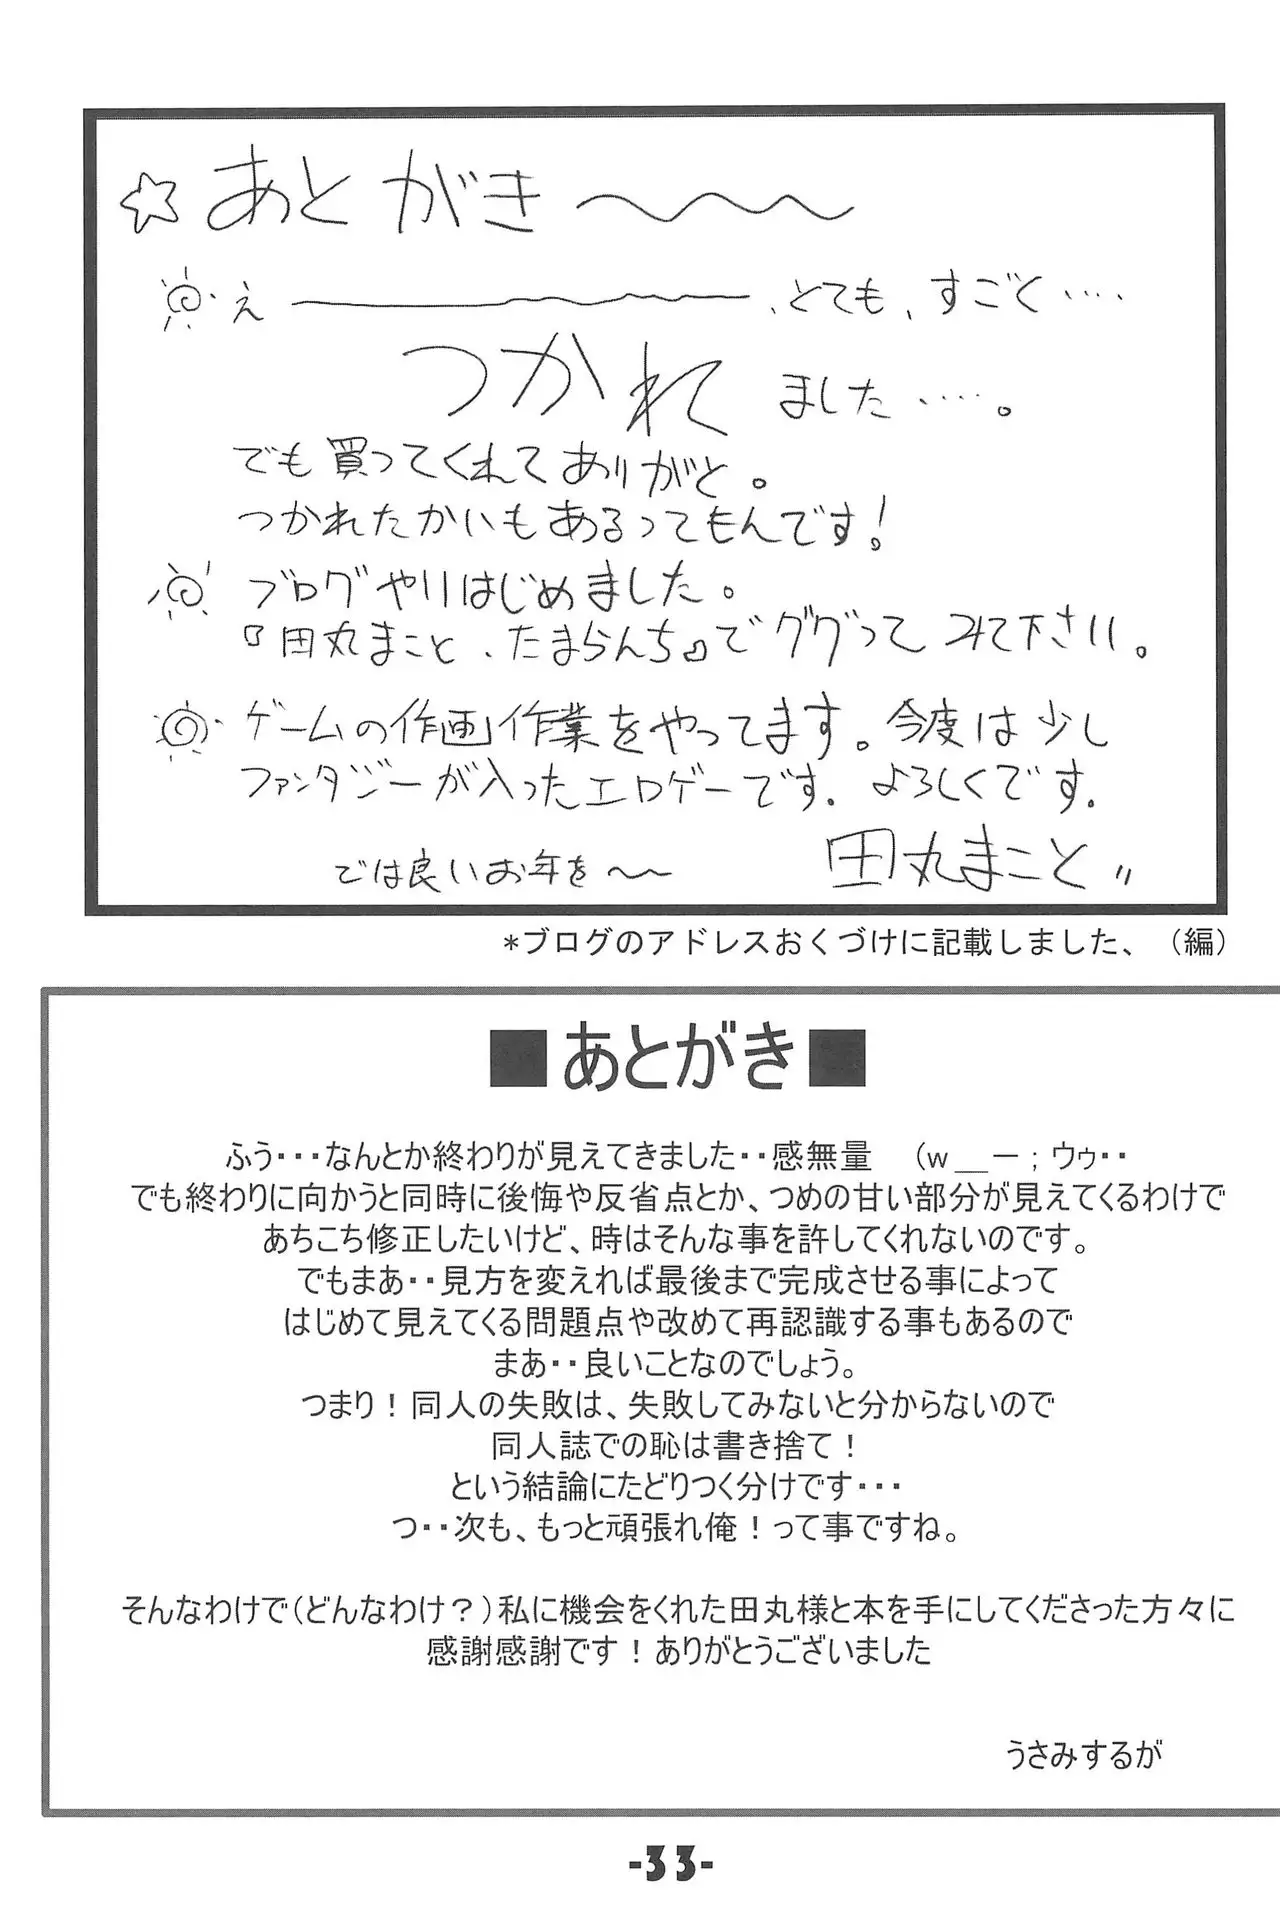 ☆あとがき〜〜〜
え――――、とても、すごく‥‥
つかれました‥‥。
でも買ってくれてありがと。
つかれたかいもあるってもんです！
ブログやりはじめました。
『田丸まこと、たまらんち』でググってみて下さい。
ゲームの作画作業をやってます。今度は少し
ファンタジーが入ったエロゲーです。よろしくです。
では良いお年を〜〜　田丸まこと〃
*ブログのアドレスおくづけに記載しました、（編）
■あとがき■
ふう・・・なんとか終わりが見えてきました・・感無量　（ｗ＿－；ウゥ・・
でも終わりに向かうと同時に後悔や反省点とか、つめの甘い部分が見えてくるわけで
あちこち修正したいけど、時はそんな事を許してくれないのです。
でもまあ・・見方を変えれば最後まで完成させる事によって
はじめて見えてくる問題点や改めて再認識する事もあるので
まあ・・良いことなのでしょう。
つまり！同人の失敗は、失敗してみないと分からないので
同人誌での恥は書き捨て！
という結論にたどりつく分けです・・・
つ・・次も、もっと頑張れ俺！って事ですね。
そんなわけで（どんなわけ？）私に機会をくれた田丸様と本を手にしてくださった方々に
感謝感謝です！ありがとうございました
うさみするが
-33-